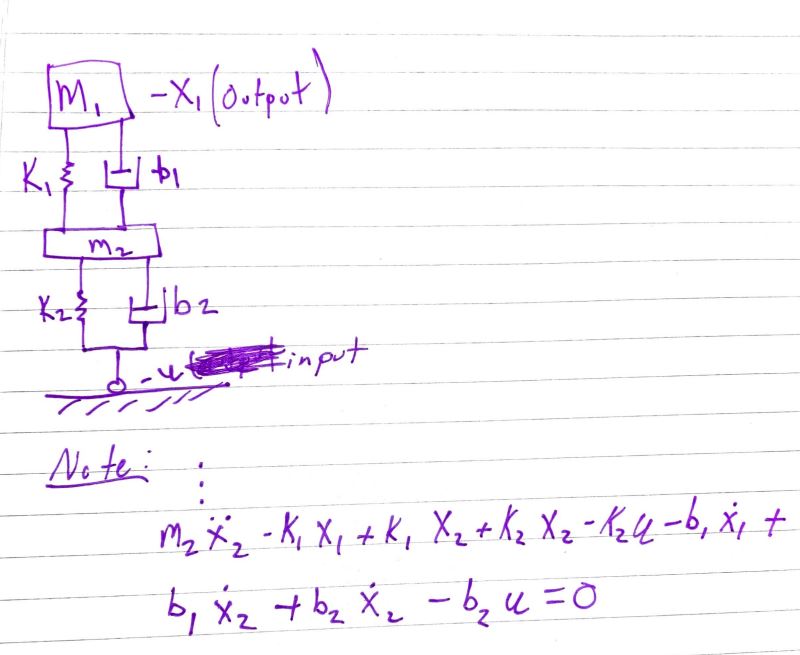 M₁ -X₁ (Output)
K₁ b₁
m₂
K₂ b₂
-u input
Note: ⋮
m₂ẍ₂ - K₁ X₁ + K₁ X₂ + K₂ X₂ - K₂u - b₁ ẋ₁ +
b₁ ẋ₂ + b₂ ẋ₂ - b₂ u = 0